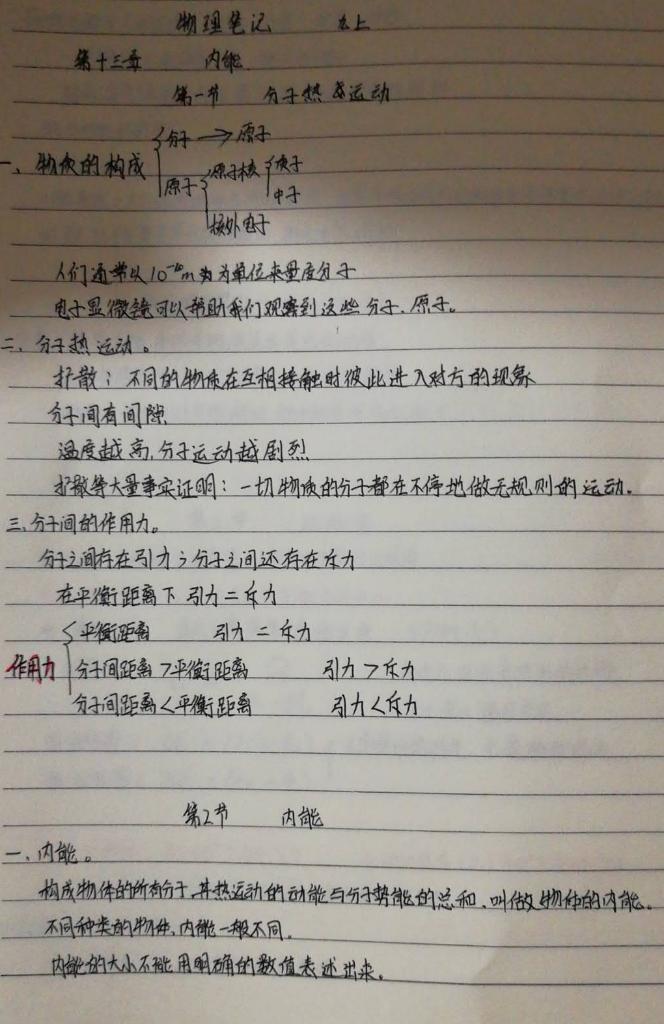 物理笔记 九上
第十三章 内能
第一节 分子热运动
分子→原子
一、物质的构成
原子 原子核 质子
中子
核外电子
人们通常以10⁻¹⁰m为单位来量度分子
电子显微镜可以帮助我们观察到这些分子、原子。
二、分子热运动。
扩散：不同的物质在互相接触时彼此进入对方的现象
分子间有间隙
温度越高，分子运动越剧烈
扩散等大量事实证明：一切物质的分子都在不停地做无规则的运动.
三、分子间的作用力。
分子之间存在引力；分子之间还存在斥力
在平衡距离下 引力=斥力
平衡距离 引力 = 斥力
作用力 分子间距离>平衡距离 引力>斥力
分子间距离<平衡距离 引力<斥力
第2节 内能
一、内能。
构成物体的所有分子，其热运动的动能与分子势能的总和，叫做物体的内能。
不同种类的物体，内能一般不同.
内能的大小不能用明确的数值表述出来。